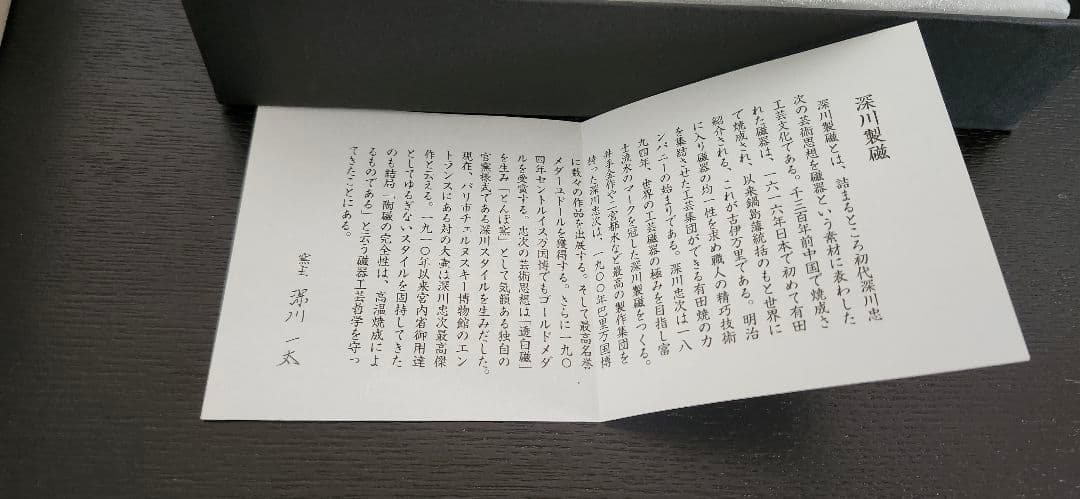 深川製磁
深川製磁とは、詰まるところ初代深川忠
次の芸術思想を磁器という素材に表わした
工芸文化である。千三百年前中国で焼成さ
れた磁器は、一六一六年日本で初めて有田
で焼成され、以来鍋島藩統括のもと世界に
紹介される、これが古伊万里である。明治
に入り磁器の均一性を求め職人の精巧技術
を集結させた工芸集団ができる有田焼のカ
ンパニーの始まりである。深川忠次は一八
九四年、世界の工芸磁器の極みを目指し富
士流水のマークを冠した深川製磁をつくる。
井手金作や二宮都水など最高の製作集団を
持った深川忠次は、一九〇〇年巴里万国博
に数々の作品を出展する。そして最高名誉
メダーユドールを獲得する。さらに一九〇
四年セントルイス万国博でもゴールドメダ
ルを受賞する。忠次の芸術思想は「透白磁」
を生み「とんぼ窯」として気韻ある独自の
官窯様式である深川スタイルを生みだした。
現在、パリ市チェルヌスキー博物館のエン
トランスにある対の大壷は深川忠次最高傑
作と云える。一九一〇年以来宮内省御用達
としてゆるぎないスタイルを固持してきた
のも結局「陶磁の完全性は、高温焼成によ
るものである」と云う磁器工芸哲学を守っ
てきたことにある。
窯主 深川 一太